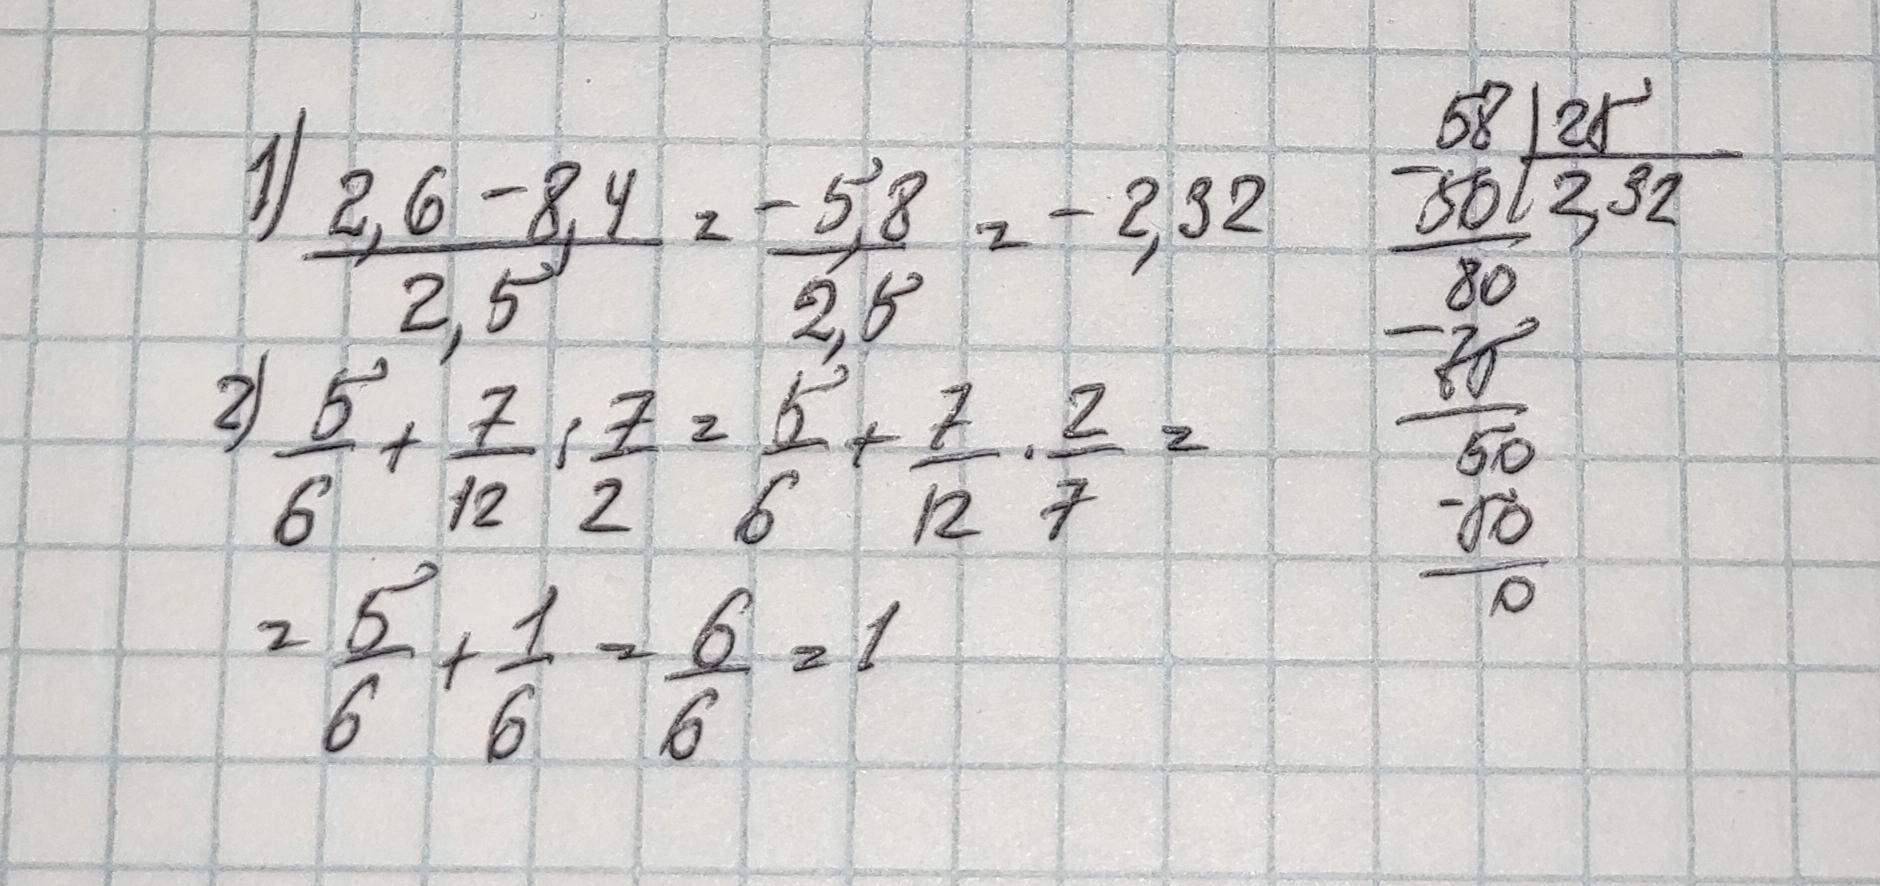 1) (2,6 - 8,4)/2,5 = -5,8/2,5 = -2,32
2) 5/6 + 7/12 : 7/2 = 5/6 + 7/12 · 2/7 =
= 5/6 + 1/6 = 6/6 = 1
58 | 25
-50 | 2,32
80
-75
50
-50
0